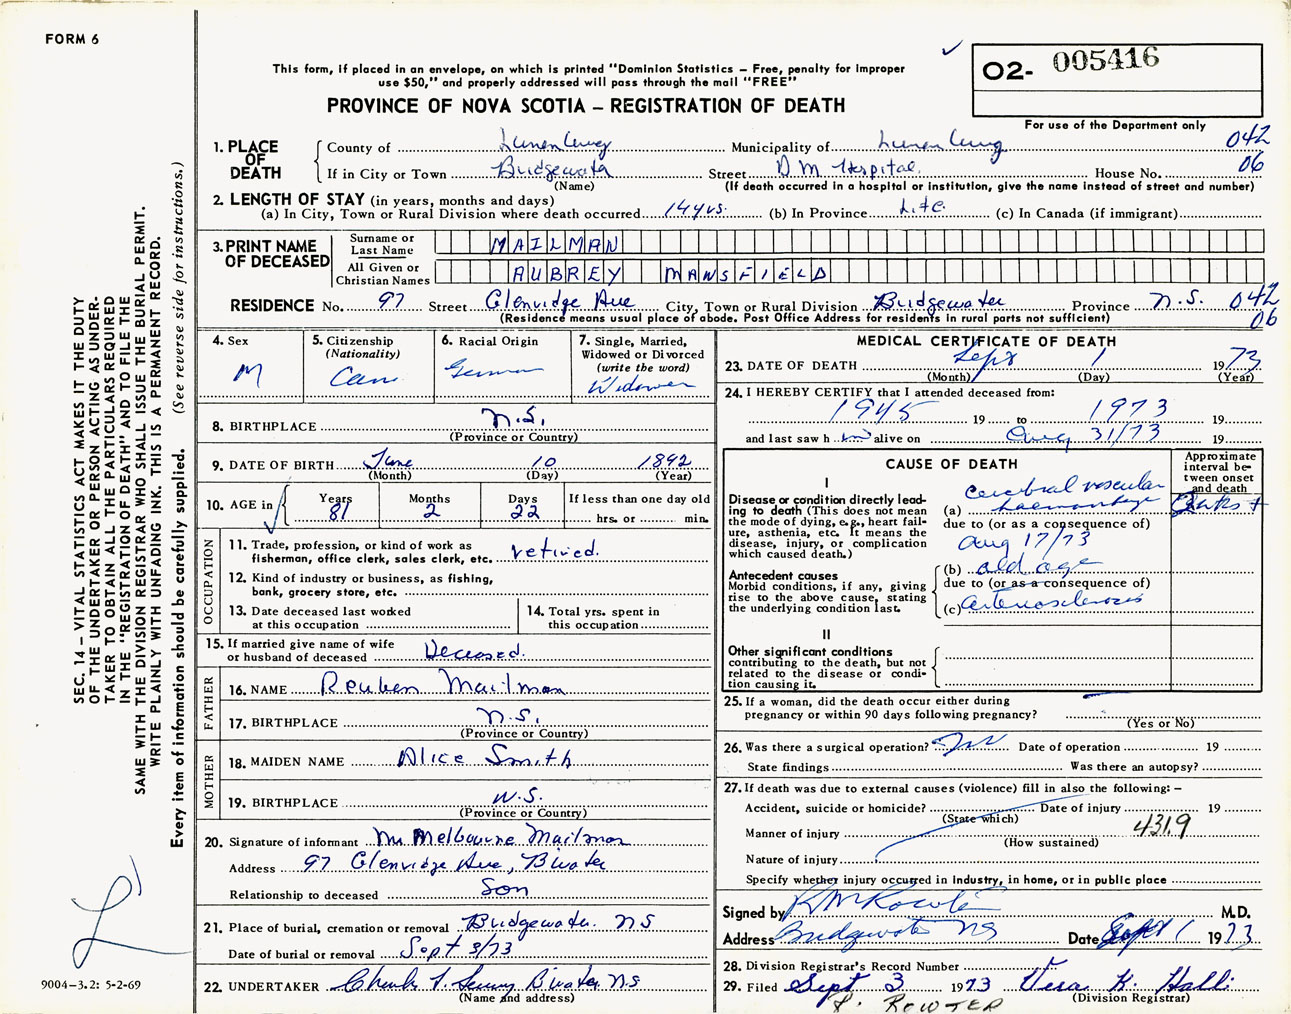 FORM 6
This form, if placed in an envelope, on which is printed "Dominion Statistics – Free, penalty for improper
use $50," and properly addressed will pass through the mail "FREE"
PROVINCE OF NOVA SCOTIA – REGISTRATION OF DEATH
O2- 005416
For use of the Department only
SEC. 14 – VITAL STATISTICS ACT MAKES IT THE DUTY
OF THE UNDERTAKER OR PERSON ACTING AS UNDER-
TAKER TO OBTAIN ALL THE PARTICULARS REQUIRED
IN THE "REGISTRATION OF DEATH" AND TO FILE THE
SAME WITH THE DIVISION REGISTRAR WHO SHALL ISSUE THE BURIAL PERMIT.
WRITE PLAINLY WITH UNFADING INK. THIS IS A PERMANENT RECORD.
Every item of information should be carefully supplied. (See reverse side for instructions.)
1. PLACE OF DEATH
County of Lunenburg Municipality of Lunenburg 042
If in City or Town Bridgewater Street D M Hospital. House No. 06
(Name) (If death occurred in a hospital or institution, give the name instead of street and number)
2. LENGTH OF STAY (in years, months and days)
(a) In City, Town or Rural Division where death occurred 14 yrs. (b) In Province Life. (c) In Canada (if immigrant)
3. PRINT NAME OF DECEASED
Surname or Last Name MAILMAN
All Given or Christian Names AUBREY MANSFIELD
RESIDENCE No. 97 Street Glenridge Ave City, Town or Rural Division Bridgewater Province N.S. 042
(Residence means usual place of abode. Post Office Address for residents in rural parts not sufficient) 06
4. Sex M
5. Citizenship (Nationality) Can
6. Racial Origin German
7. Single, Married, Widowed or Divorced (write the word) Widower
8. BIRTHPLACE N.S.
(Province or Country)
9. DATE OF BIRTH June 10 1892
(Month) (Day) (Year)
10. AGE in Years 81 Months 2 Days 22 If less than one day old
hrs. or min.
OCCUPATION
11. Trade, profession, or kind of work as
fisherman, office clerk, sales clerk, etc. retired.
12. Kind of industry or business, as fishing,
bank, grocery store, etc.
13. Date deceased last worked
at this occupation
14. Total yrs. spent in
this occupation
15. If married give name of wife
or husband of deceased Deceased.
FATHER
16. NAME Reuben Mailman
17. BIRTHPLACE N.S.
(Province or Country)
MOTHER
18. MAIDEN NAME Alice Smith
19. BIRTHPLACE N.S.
(Province or Country)
20. Signature of informant Mr Melbourne Mailman
Address 97 Glenridge Ave, B'water
Relationship to deceased Son
21. Place of burial, cremation or removal Bridgewater. NS
Date of burial or removal Sept 3/73
22. UNDERTAKER B'water NS
(Name and address)
MEDICAL CERTIFICATE OF DEATH
23. DATE OF DEATH Sept 1 1973
(Month) (Day) (Year)
24. I HEREBY CERTIFY that I attended deceased from:
1945 19 to 1973 19
and last saw h im alive on Aug 31/73 19
CAUSE OF DEATH
Approximate interval between onset and death
I
Disease or condition directly lead-
ing to death (This does not mean
the mode of dying, e.g., heart fail-
ure, asthenia, etc. It means the
disease, injury, or complication
which caused death.)
cerebral vascular
(a) haemorrhage 2 wks +
due to (or as a consequence of)
Aug 17/73
Antecedent causes
Morbid conditions, if any, giving
rise to the above cause, stating
the underlying condition last.
(b) old age
due to (or as a consequence of)
(c) arteriosclerosis
II
Other significant conditions
contributing to the death, but not
related to the disease or condi-
tion causing it.
25. If a woman, did the death occur either during
pregnancy or within 90 days following pregnancy?
(Yes or No)
26. Was there a surgical operation? No Date of operation 19
State findings Was there an autopsy?
27. If death was due to external causes (violence) fill in also the following: –
Accident, suicide or homicide? Date of injury 19
(State which)
Manner of injury 431.9
(How sustained)
Nature of injury
Specify whether injury occurred in industry, in home, or in public place
Signed by M.D.
Address Bridgewater NS Date Sept 1 1973
28. Division Registrar's Record Number
29. Filed Sept 3 1973 Vera K.
(Division Registrar)
R. ROWTER
9004–3.2: 5-2-69